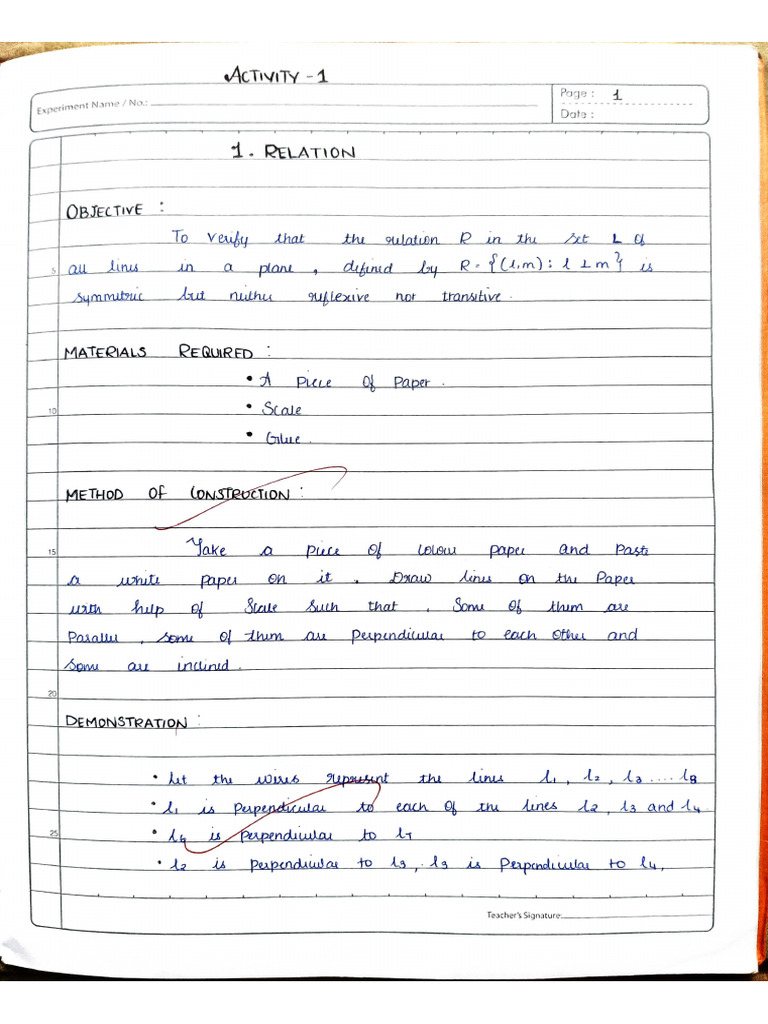 ACTIVITY - 1
Experiment Name / No.:
Page : 1
Date :
1. RELATION
OBJECTIVE :
To verify that the relation R in the set L of
5 all lines in a plane, defined by R = {(l,m) : l ⊥ m} is
symmetric but neither reflexive not transitive.
MATERIALS REQUIRED :
• A piece of paper.
10 • Scale
• Glue.
METHOD OF CONSTRUCTION :
15 Take a piece of colour paper and paste
a white paper on it. Draw lines on the Paper
with help of Scale such that, Some of them are
Parallel, some of them are Perpendicular to each other and
some are inclined.
20
DEMONSTRATION :
• Let the wires represent the lines l1, l2, l3 .... l8
• l1 is Perpendicular to each of the lines l2, l3 and l4
25 • l4 is perpendicular to l7
• l2 is perpendicular to l3, l3 is Perpendicular to l4,
Teacher's Signature: